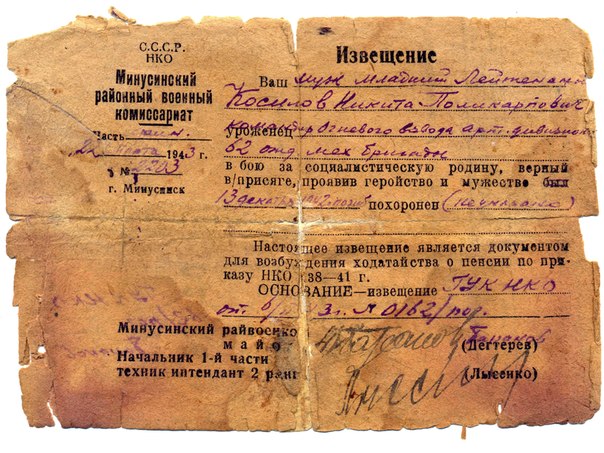 С.С.С.Р.
НКО
Минусинский
районный военный
комиссариат
Часть
1943 г.
№
г. Минусинск
Извещение
Ваш муж младший Лейтенант
Косилов Никита Поликарпович
уроженец командир Огневого взвода арт. дивизион
62 отд мех бригады
в бою за социалистическую родину, верный
в/присяге, проявив геройство и мужество был
13 декабря 1942 похоронен
Настоящее извещение является документом
для возбуждения ходатайства о пенсии по при-
казу НКО 38—41 г.
ОСНОВАНИЕ—извещение ГУК НКО
от № 0162/
Минусинский райвоенко
майо (Дегтерев)
Начальник 1-й части
техник интендант 2 ранг (Лысенко)